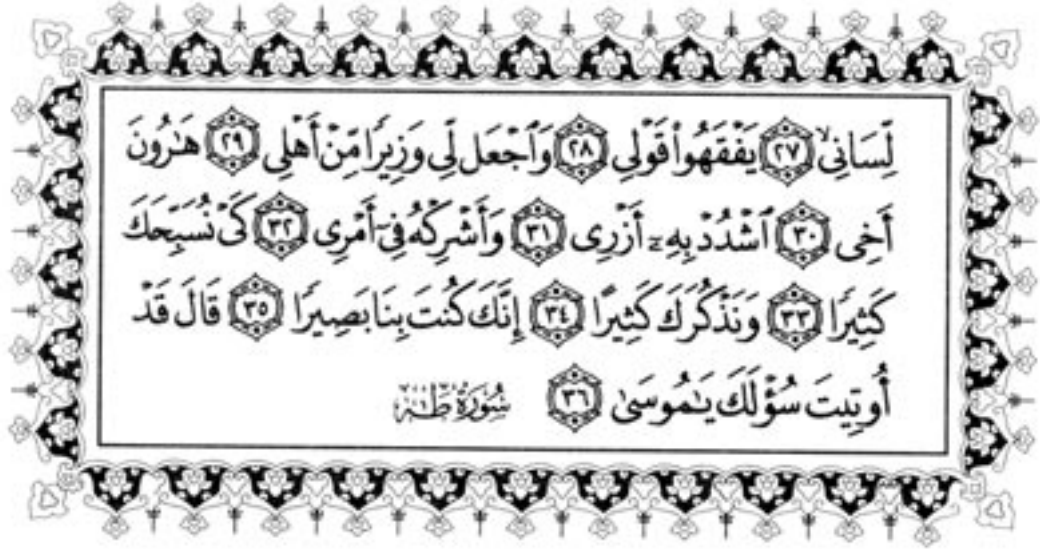 لِّسَانِي ٢٧ يَفْقَهُوا۟ قَوْلِي ٢٨ وَٱجْعَل لِّي وَزِيرًا مِّنْ أَهْلِي ٢٩ هَٰرُونَ
أَخِي ٣٠ ٱشْدُدْ بِهِۦٓ أَزْرِي ٣١ وَأَشْرِكْهُ فِيٓ أَمْرِي ٣٢ كَيْ نُسَبِّحَكَ
كَثِيرًا ٣٣ وَنَذْكُرَكَ كَثِيرًا ٣٤ إِنَّكَ كُنتَ بِنَا بَصِيرًا ٣٥ قَالَ قَدْ
أُوتِيتَ سُؤْلَكَ يَٰمُوسَىٰ ٣٦ سُورَةُ طه